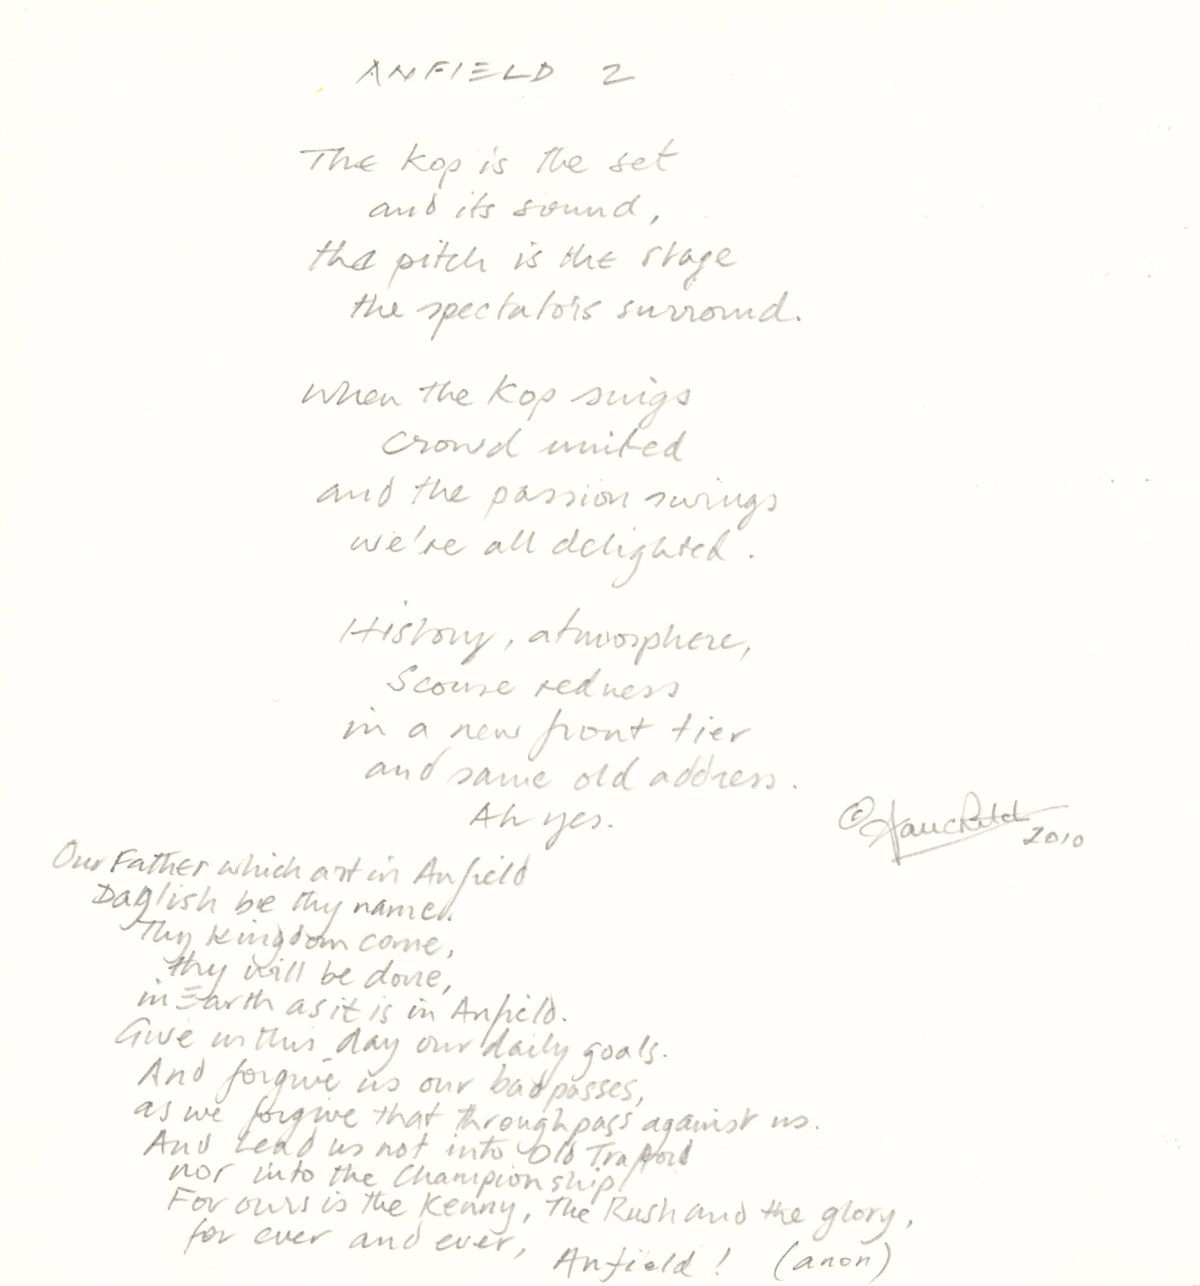 ANFIELD 2
The Kop is the set
and its sound,
the pitch is the stage
the spectators surround.
When the Kop sings
Crowd united
and the passion swings
we're all delighted.
History, atmosphere,
Scouse redness
in a new front tier
and same old address.
Ah yes.
©
2010
Our Father which art in Anfield
Daglish be thy name.
Thy kingdom come,
thy will be done,
in Earth as it is in Anfield.
Give us this day our daily goals.
And forgive us our bad passes,
as we forgive that through pass against us.
And Lead us not into Old Trafford
nor into the Championship!
For ours is the Kenny, The Rush and the glory,
for ever and ever,
Anfield! (anon)